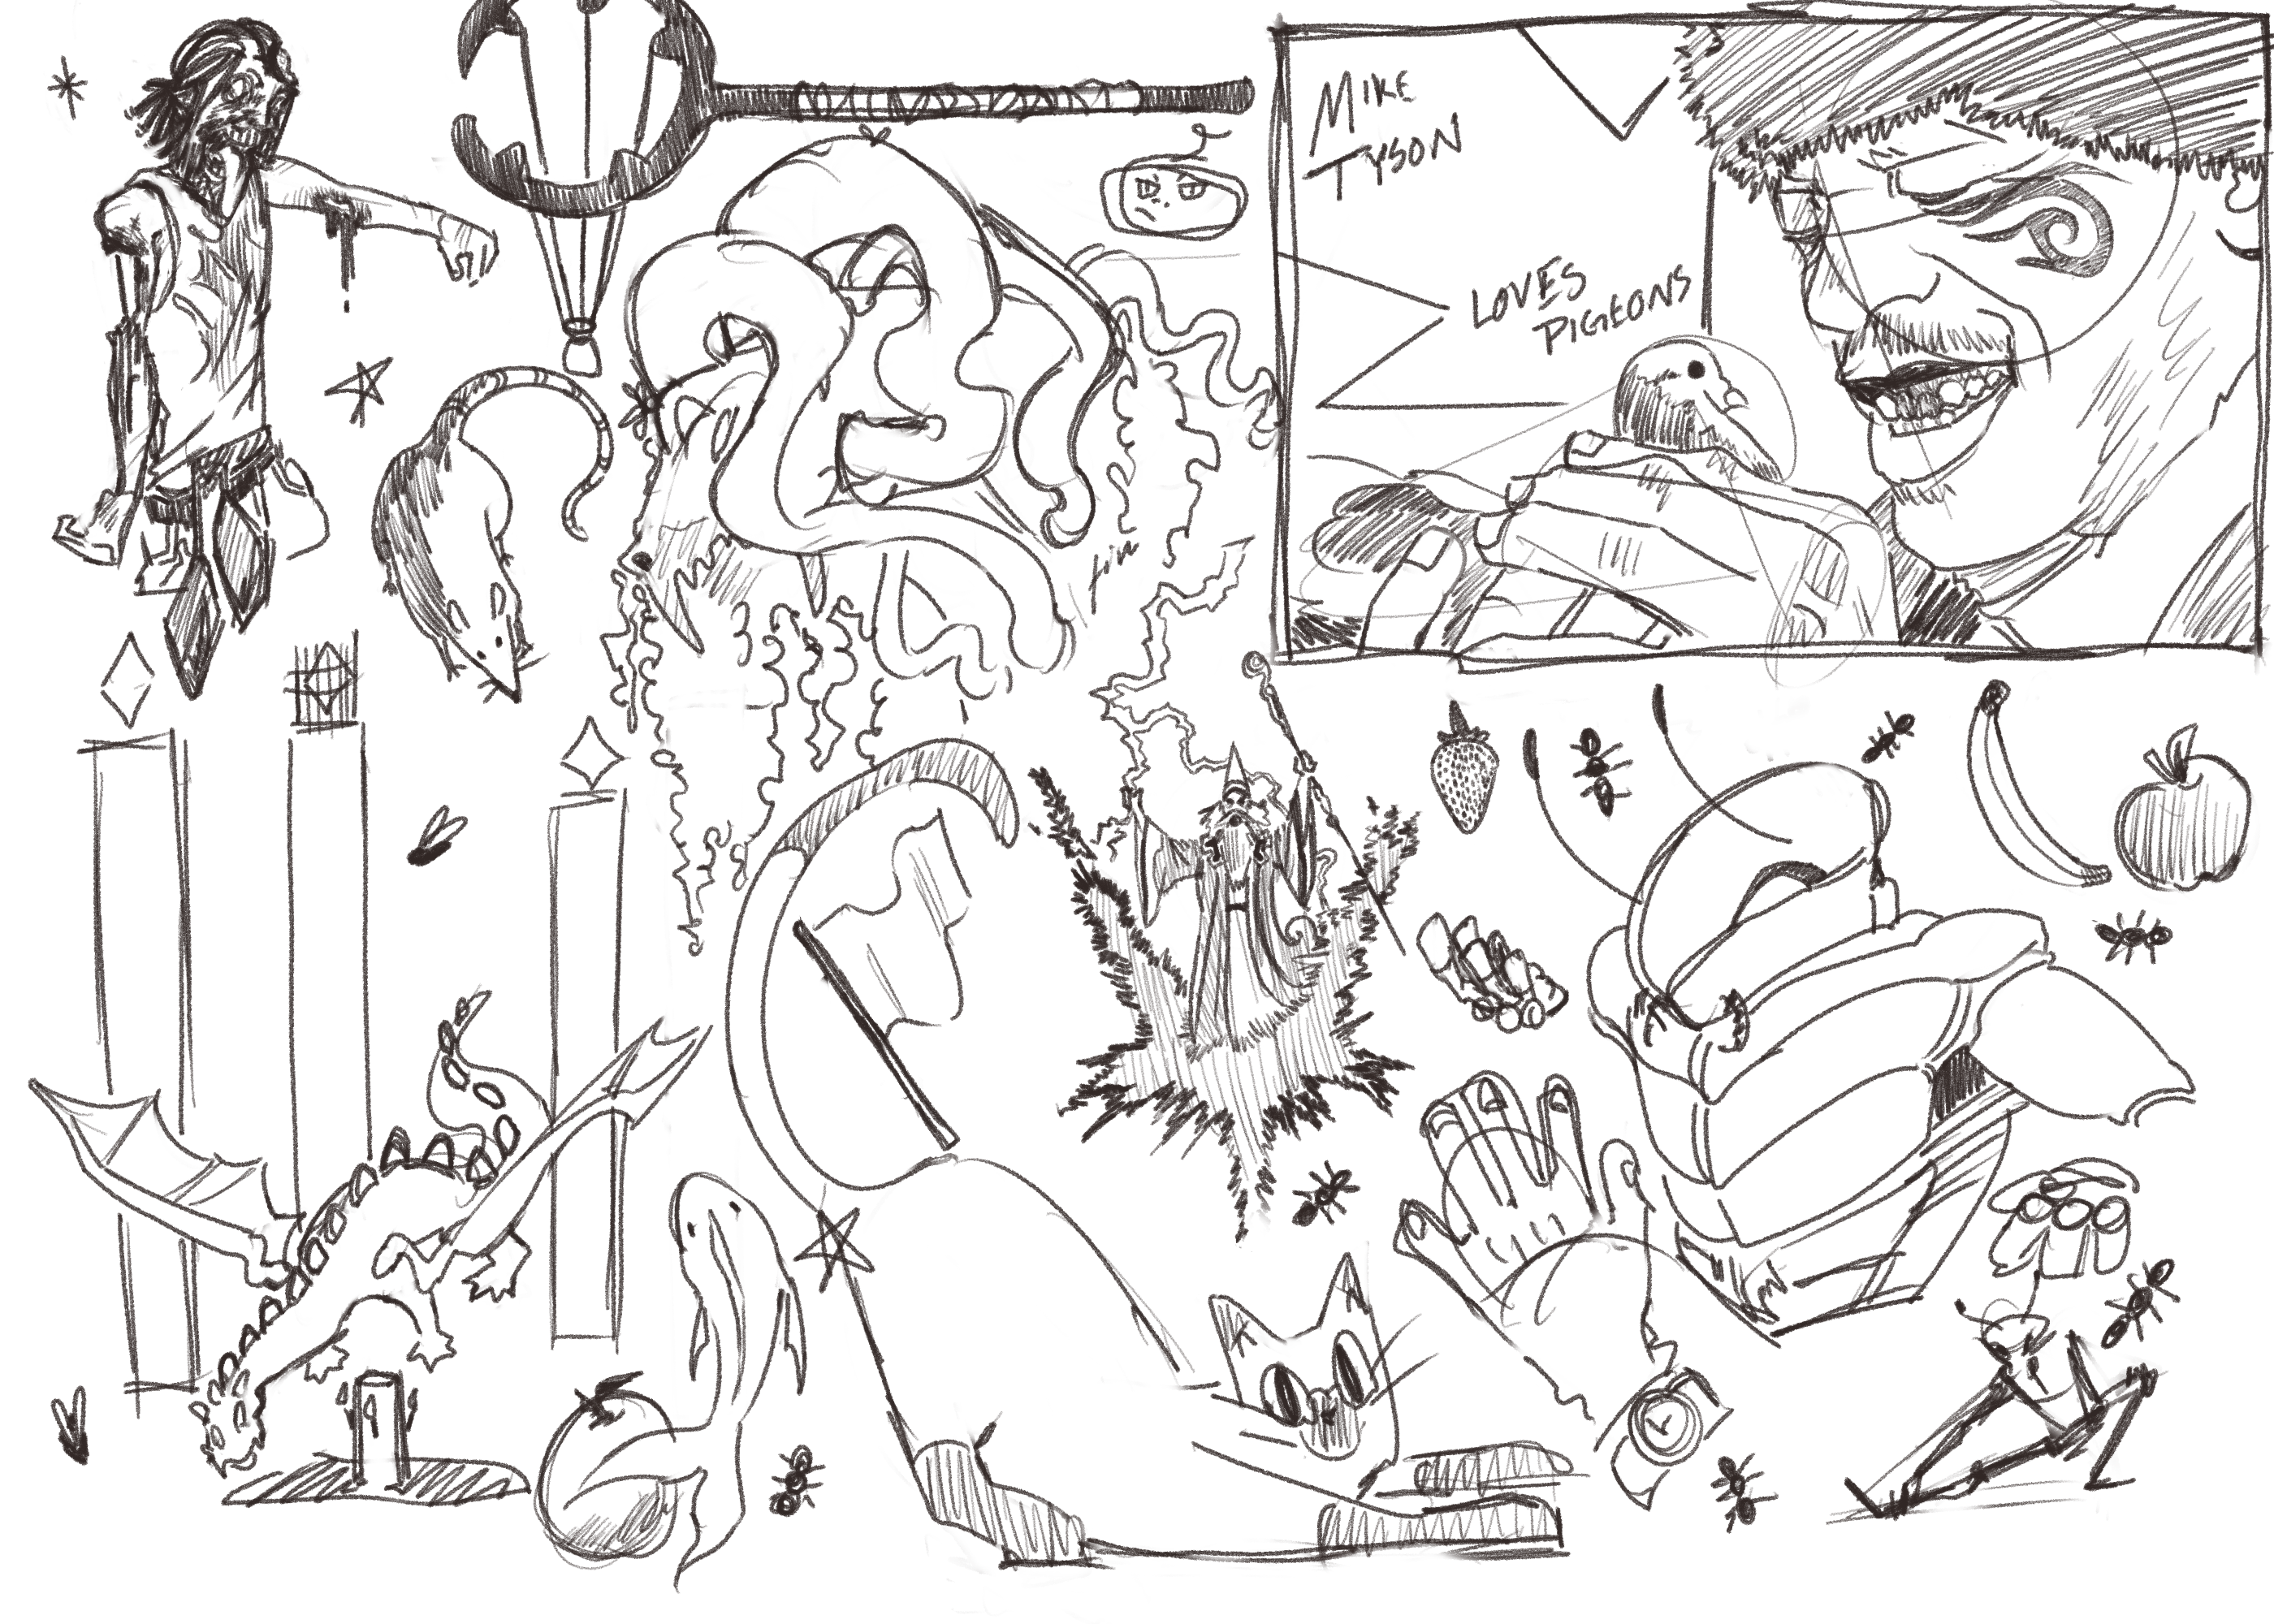 MIKE
TYSON
LOVES
PIGEONS